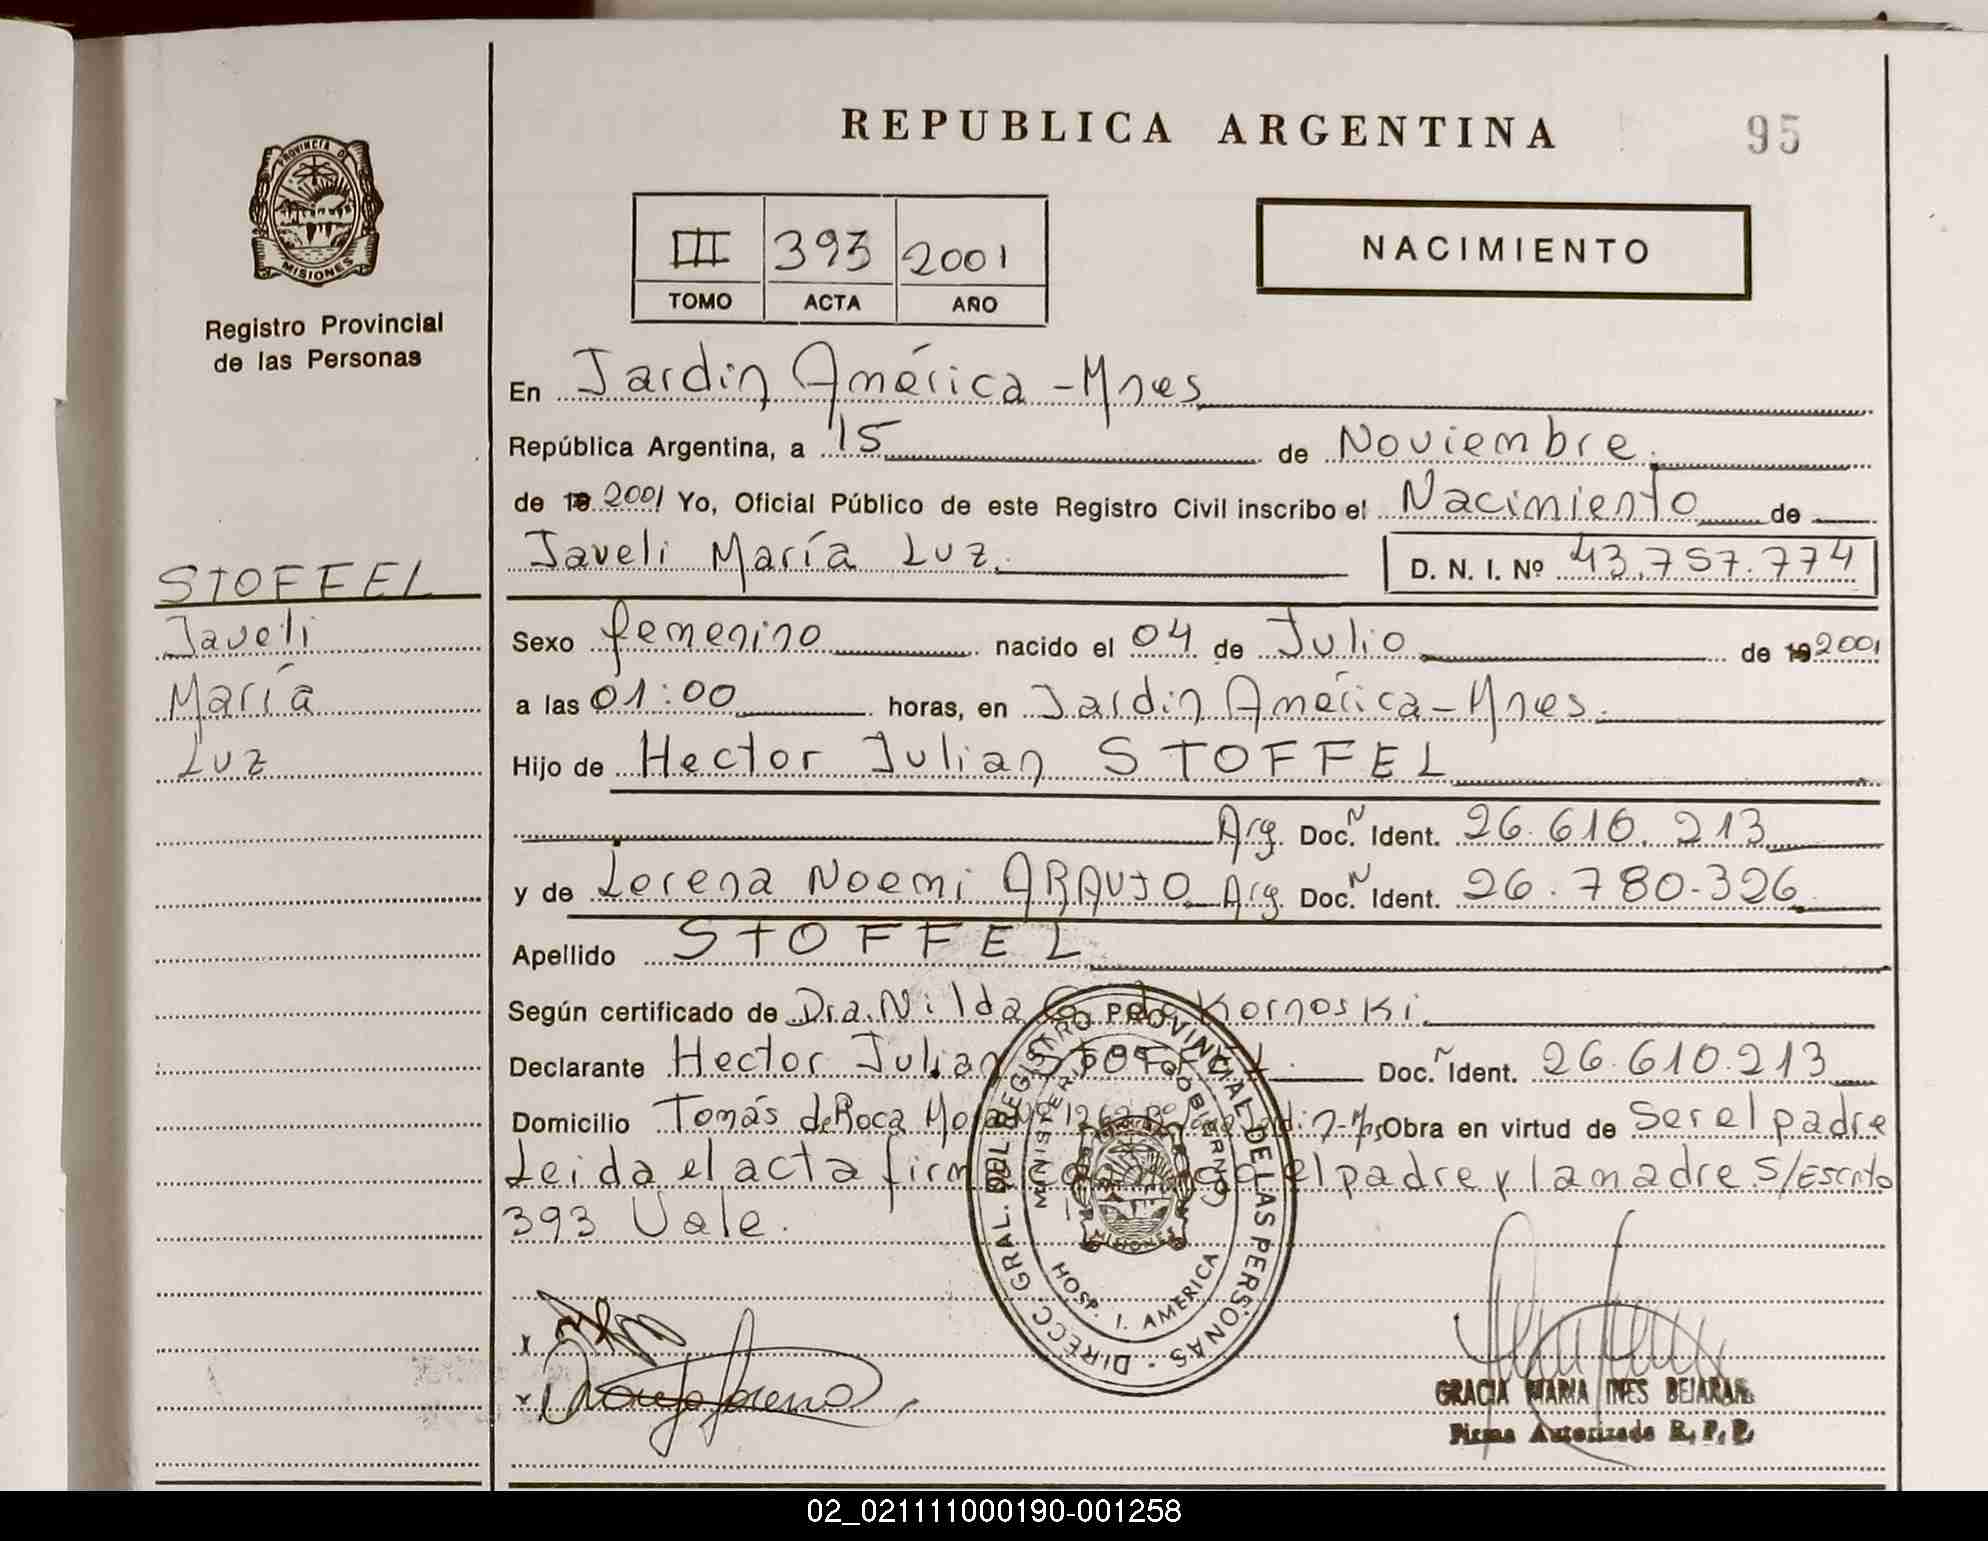 REPUBLICA ARGENTINA
95
PROVINCIA DE
MISIONES
Registro Provincial
de las Personas
III 393 2001
TOMO ACTA AÑO
NACIMIENTO
En Jardin América - Mnes
República Argentina, a 15 de Noviembre.
de 19 2001 Yo, Oficial Público de este Registro Civil inscribo el Nacimiento de
Javeli María Luz. D. N. I. Nº 43.757.774
STOFFEL
Javeli
María
Luz
Sexo femenino nacido el 04 de Julio de 19 2001
a las 01:00 horas, en Jardin América - Mnes.
Hijo de Hector Julian STOFFEL
Arg. Doc. N Ident. 26.610.213
y de Lorena Noemi ARAUJO Arg. Doc. N Ident. 26.780.326
Apellido STOFFEL
Según certificado de Dra. Nilda G. de Kornoski
Declarante Hector Julian STOFFEL. Doc. N Ident. 26.610.213
Domicilio Tomás de Roca Obra en virtud de ser el padre
Leida el acta el padre y la madre S/Escrito
393 Vale.
DIRECC. GRAL. DEL REGISTRO PROVINCIAL DE LAS PERSONAS
MINISTERIO DE GOBIERNO
MISIONES
HOSP. I. AMERICA
x
x Araujo Lorena
GRACIA MARIA INES BEJARAN
Firma Autorizada R. P. P.
02_021111000190-001258